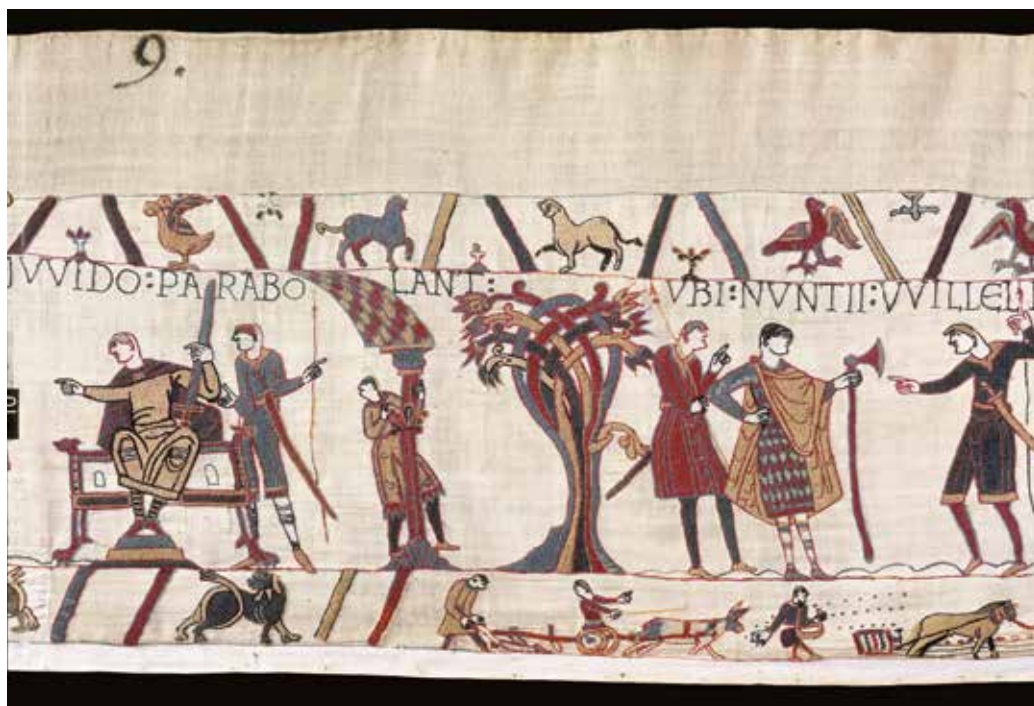 9.
VVIDO : PARABO LANT : VBI : NVNTII : VVILLEL